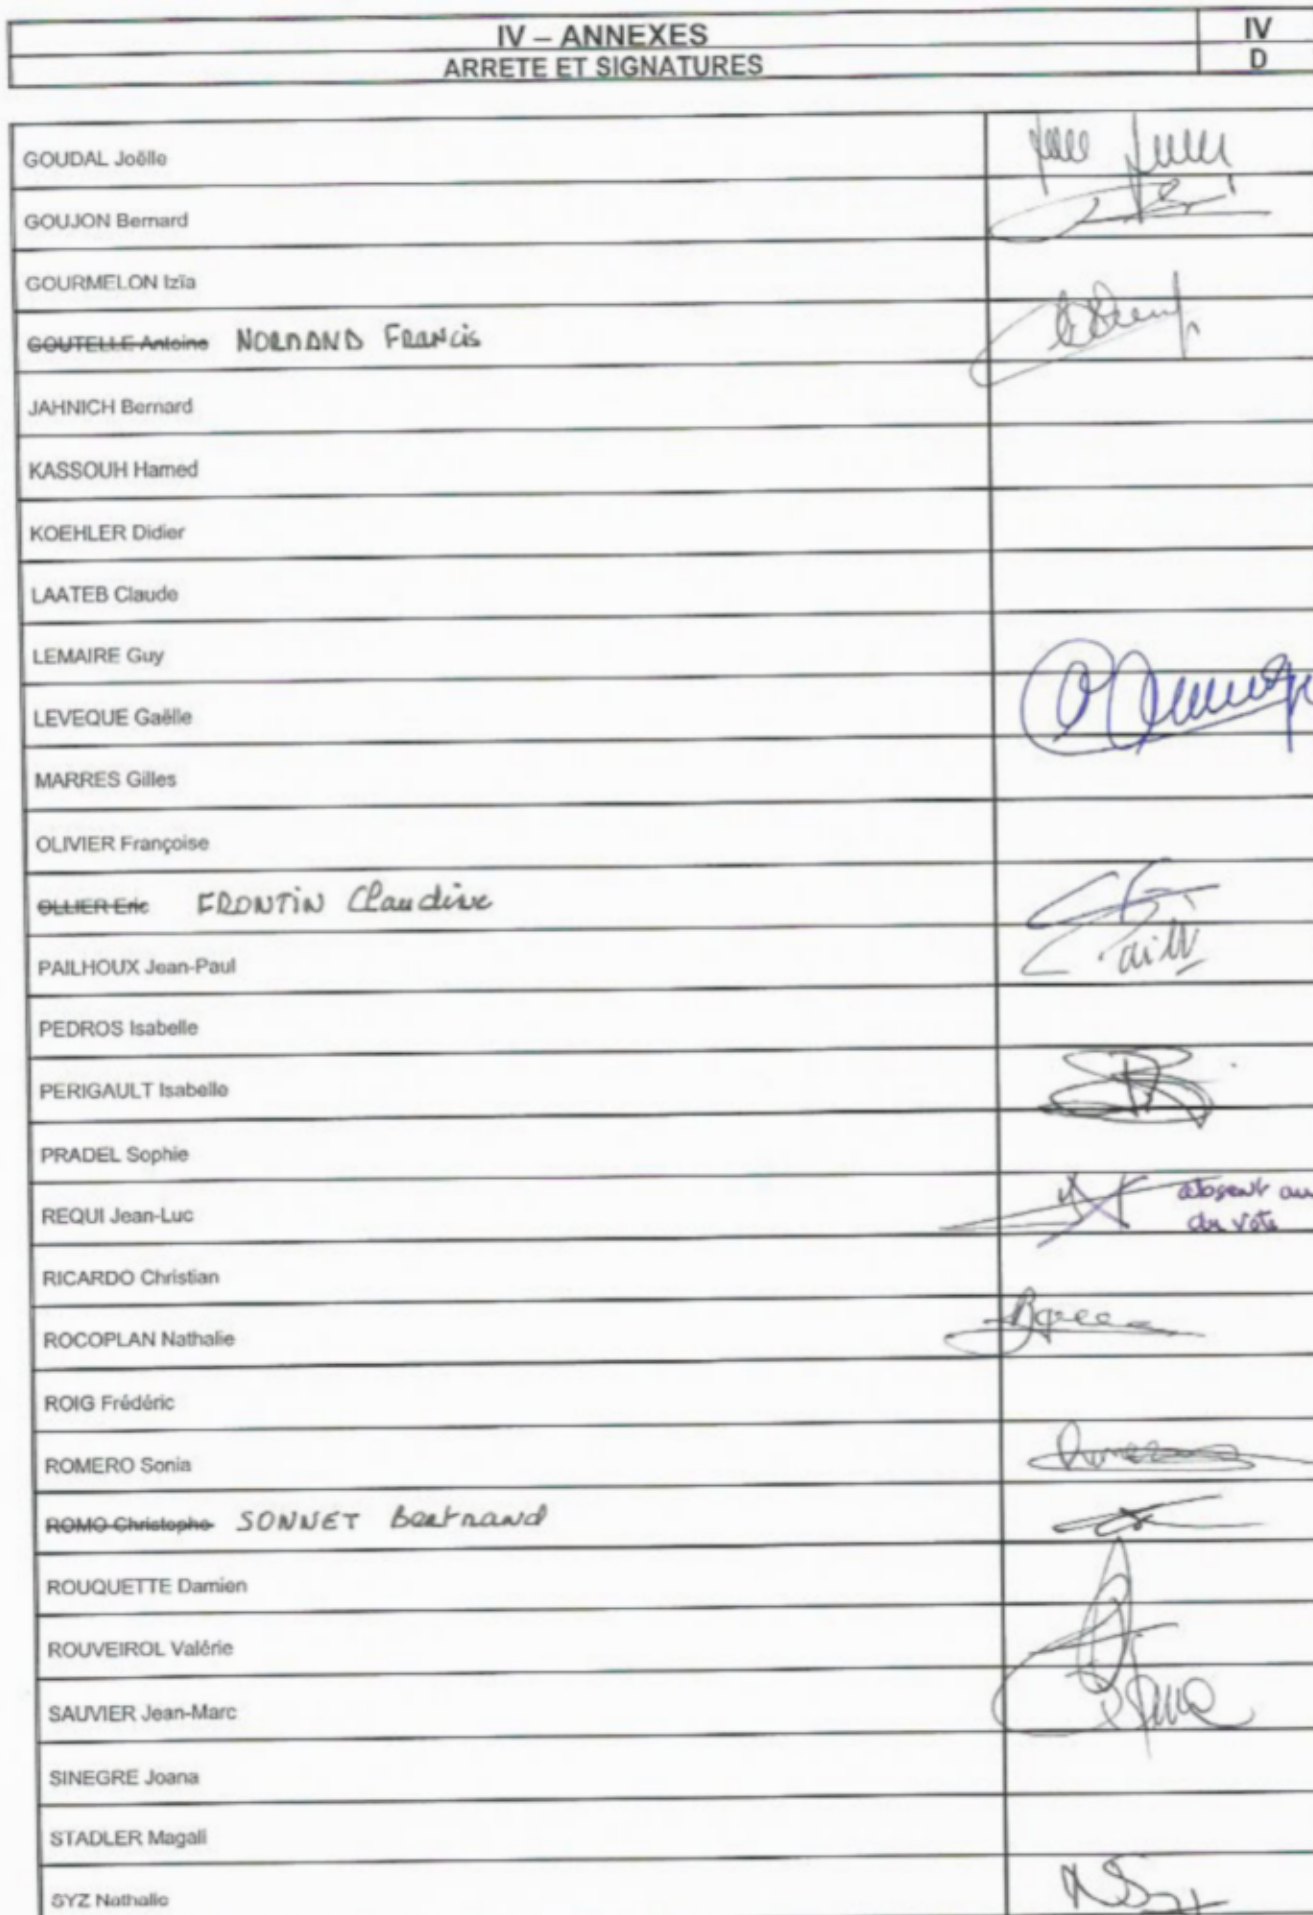 IV – ANNEXES
IV
ARRETE ET SIGNATURES
D
GOUDAL Joëlle
GOUJON Bernard
GOURMELON Izïa
GOUTELLE Antoine NORMAND Francis
JAHNICH Bernard
KASSOUH Hamed
KOEHLER Didier
LAATEB Claude
LEMAIRE Guy
LEVEQUE Gaëlle
MARRES Gilles
OLIVIER Françoise
OLLIER Eric FRONTIN Claudine
PAILHOUX Jean-Paul
PEDROS Isabelle
PERIGAULT Isabelle
PRADEL Sophie
REQUI Jean-Luc absent au
du vote
RICARDO Christian
ROCOPLAN Nathalie
ROIG Frédéric
ROMERO Sonia
ROMO Christophe SONNET Bertrand
ROUQUETTE Damien
ROUVEIROL Valérie
SAUVIER Jean-Marc
SINEGRE Joana
STADLER Magali
SYZ Nathalie